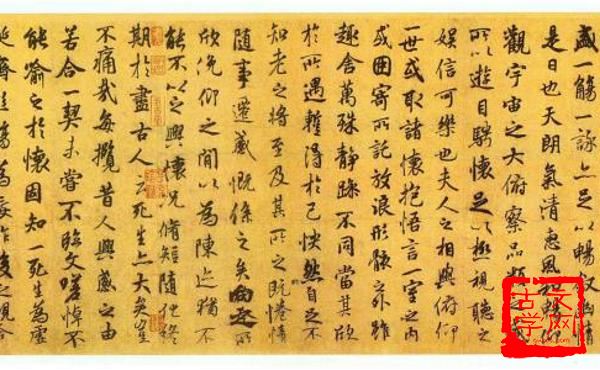 盛一觴一詠亦足以暢叙幽情
是日也天朗氣清惠風和暢仰
觀宇宙之大俯察品類之盛
所以遊目騁懷足以極視聽之
娛信可樂也夫人之相與俯仰
一世或取諸懷抱悟言一室之內
或因寄所託放浪形骸之外雖
趣舍萬殊靜躁不同當其欣
於所遇暫得於己怏然自足不
知老之將至及其所之既惓情
隨事遷感慨係之矣向之所
欣俛仰之間以為陳迹猶不
能不以之興懷況脩短隨化終
期於盡古人云死生亦大矣豈
不痛哉每攬昔人興感之由
若合一契未嘗不臨文嗟悼不
能喻之於懷固知一死生為虛
誕齊彭殤為妄作後之視今
古文学网